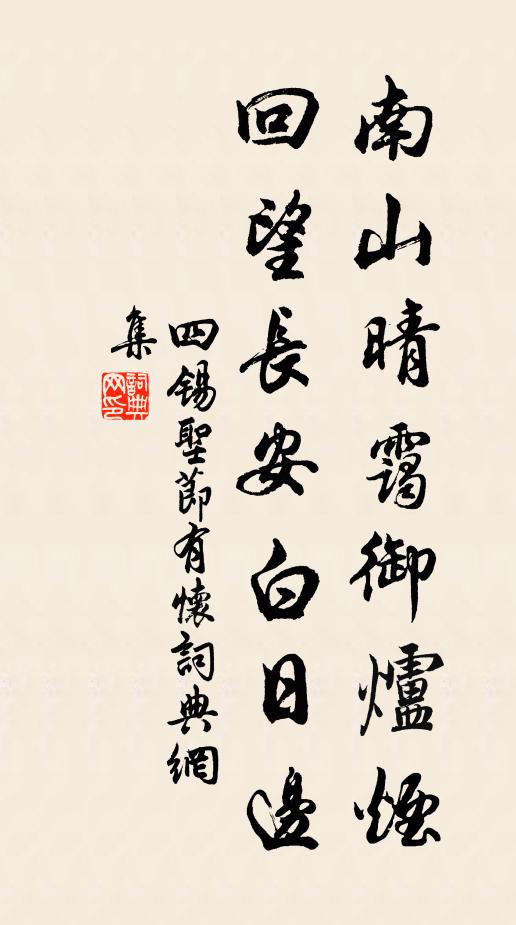 南山晴靄御爐煙
回望長安白日邊
四錫聖節有懷詞典網
集
詞典網印